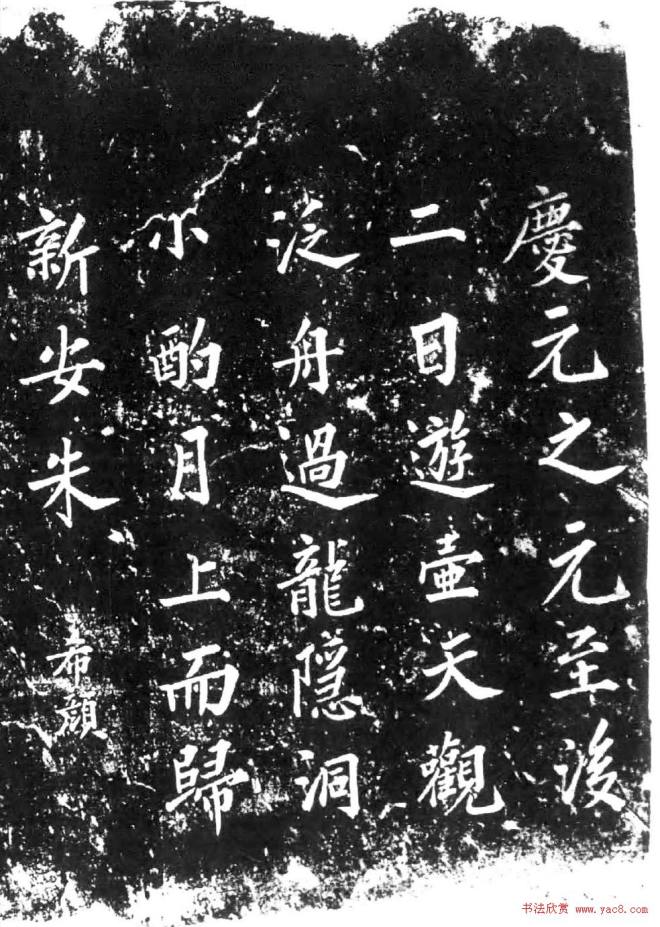 慶元之元至後
二日遊壷天觀
泛舟過龍隠洞
小酌月上而歸
新安朱希顔
书法欣赏 www.yac8.com